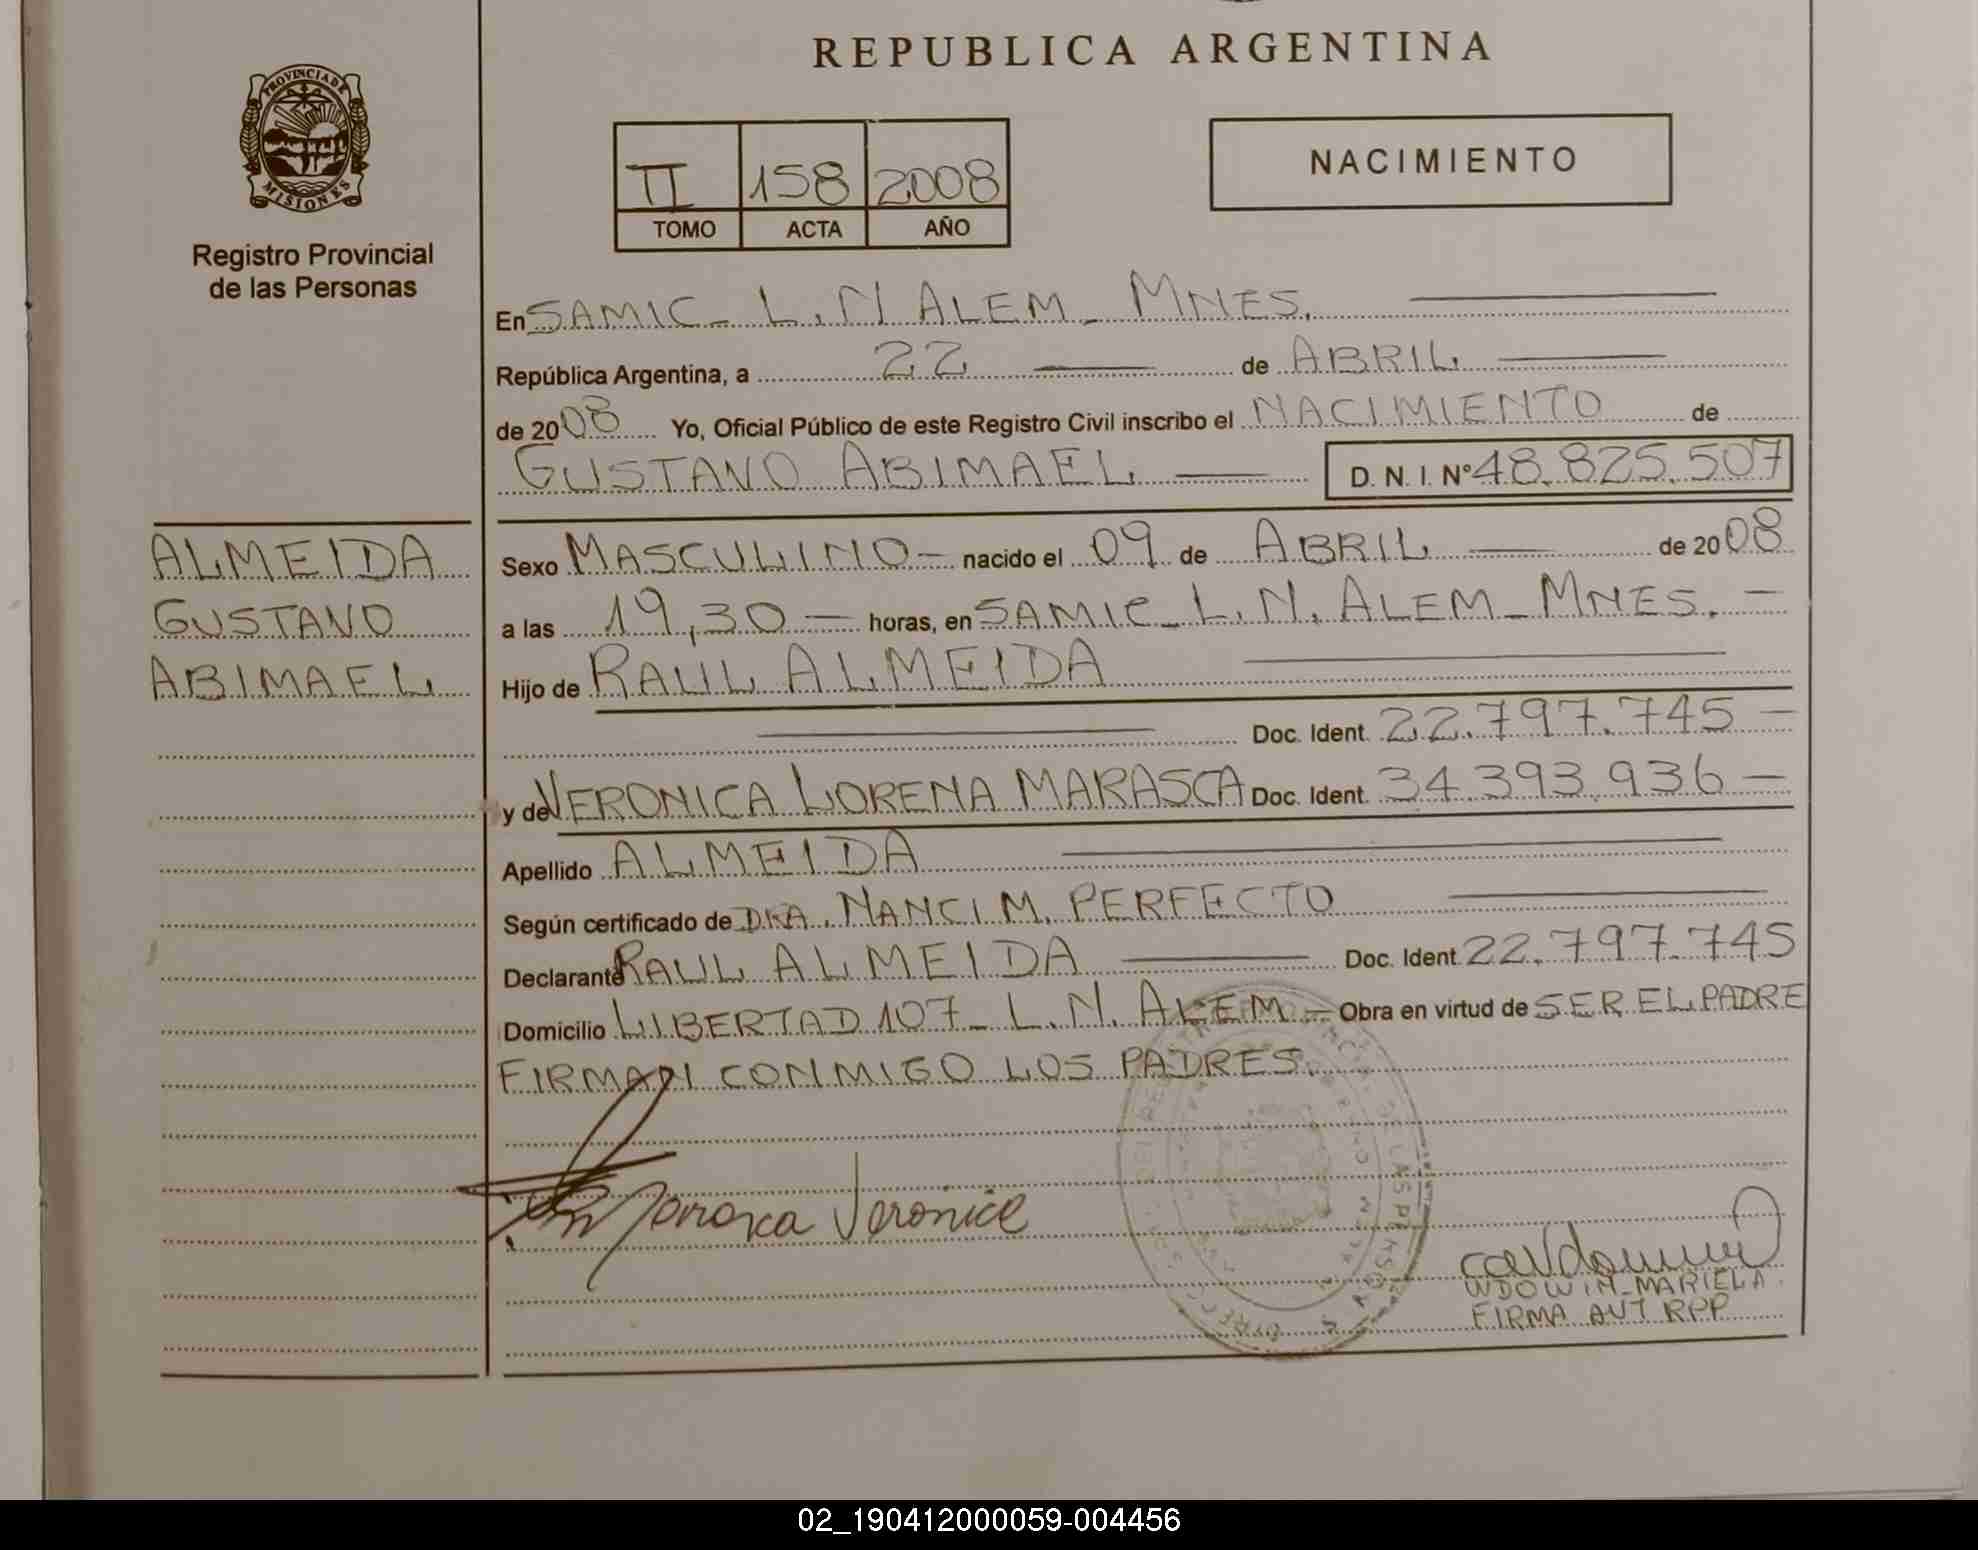 REPUBLICA ARGENTINA
PROVINCIA DE
MISIONES
Registro Provincial
de las Personas
II 158 2008
TOMO ACTA AÑO
NACIMIENTO
En SAMIC - L.N ALEM - MNES.
República Argentina, a 22 de ABRIL
de 2008 Yo, Oficial Público de este Registro Civil inscribo el NACIMIENTO de
GUSTAVO ABIMAEL D. N. I. N° 48.825.507
ALMEIDA
GUSTAVO
ABIMAEL
Sexo MASCULINO - nacido el 09 de ABRIL de 2008
a las 19,30 - horas, en SAMIC - L.N. ALEM - MNES. -
Hijo de RAUL ALMEIDA
Doc. Ident. 22.797.745 -
y de VERONICA LORENA MARASCA Doc. Ident. 34.393.936 -
Apellido ALMEIDA
Según certificado de DRA. NANCI M. PERFECTO
Declarante RAUL ALMEIDA Doc. Ident. 22.797.745
Domicilio LIBERTAD 107 - L.N. ALEM - Obra en virtud de SER EL PADRE
FIRMAN CONMIGO LOS PADRES.
Marasca Veronica
WDOWIN MARIELA
FIRMA AUT RPP
02_190412000059-004456